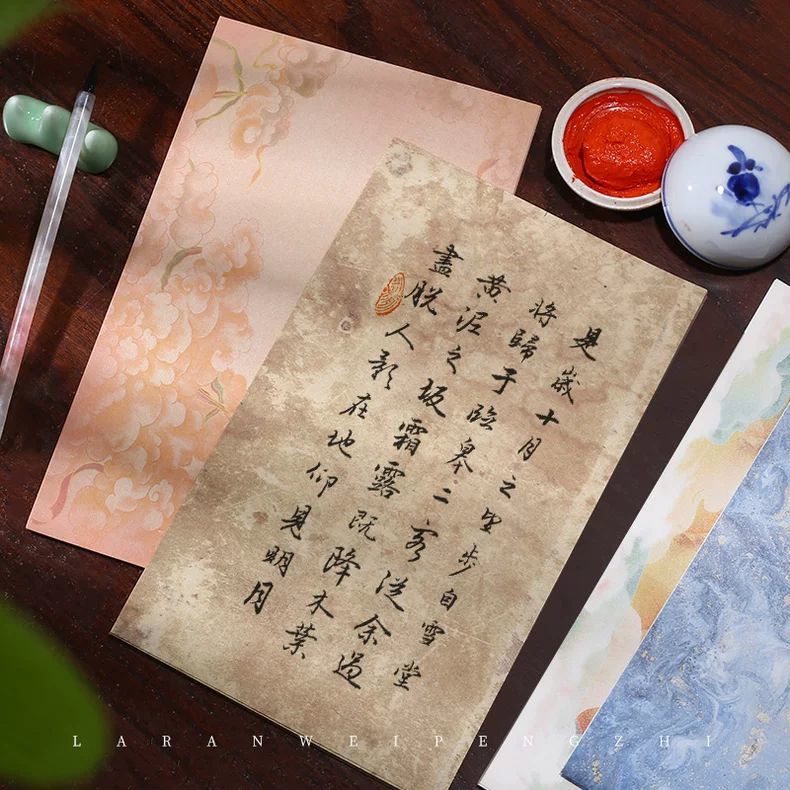 是歲十月之望步自雪堂
將歸于臨皋二客從余過
黄泥之坂霜露既降木葉
盡脱人影在地仰見明月
LARANWEIPENGZHI